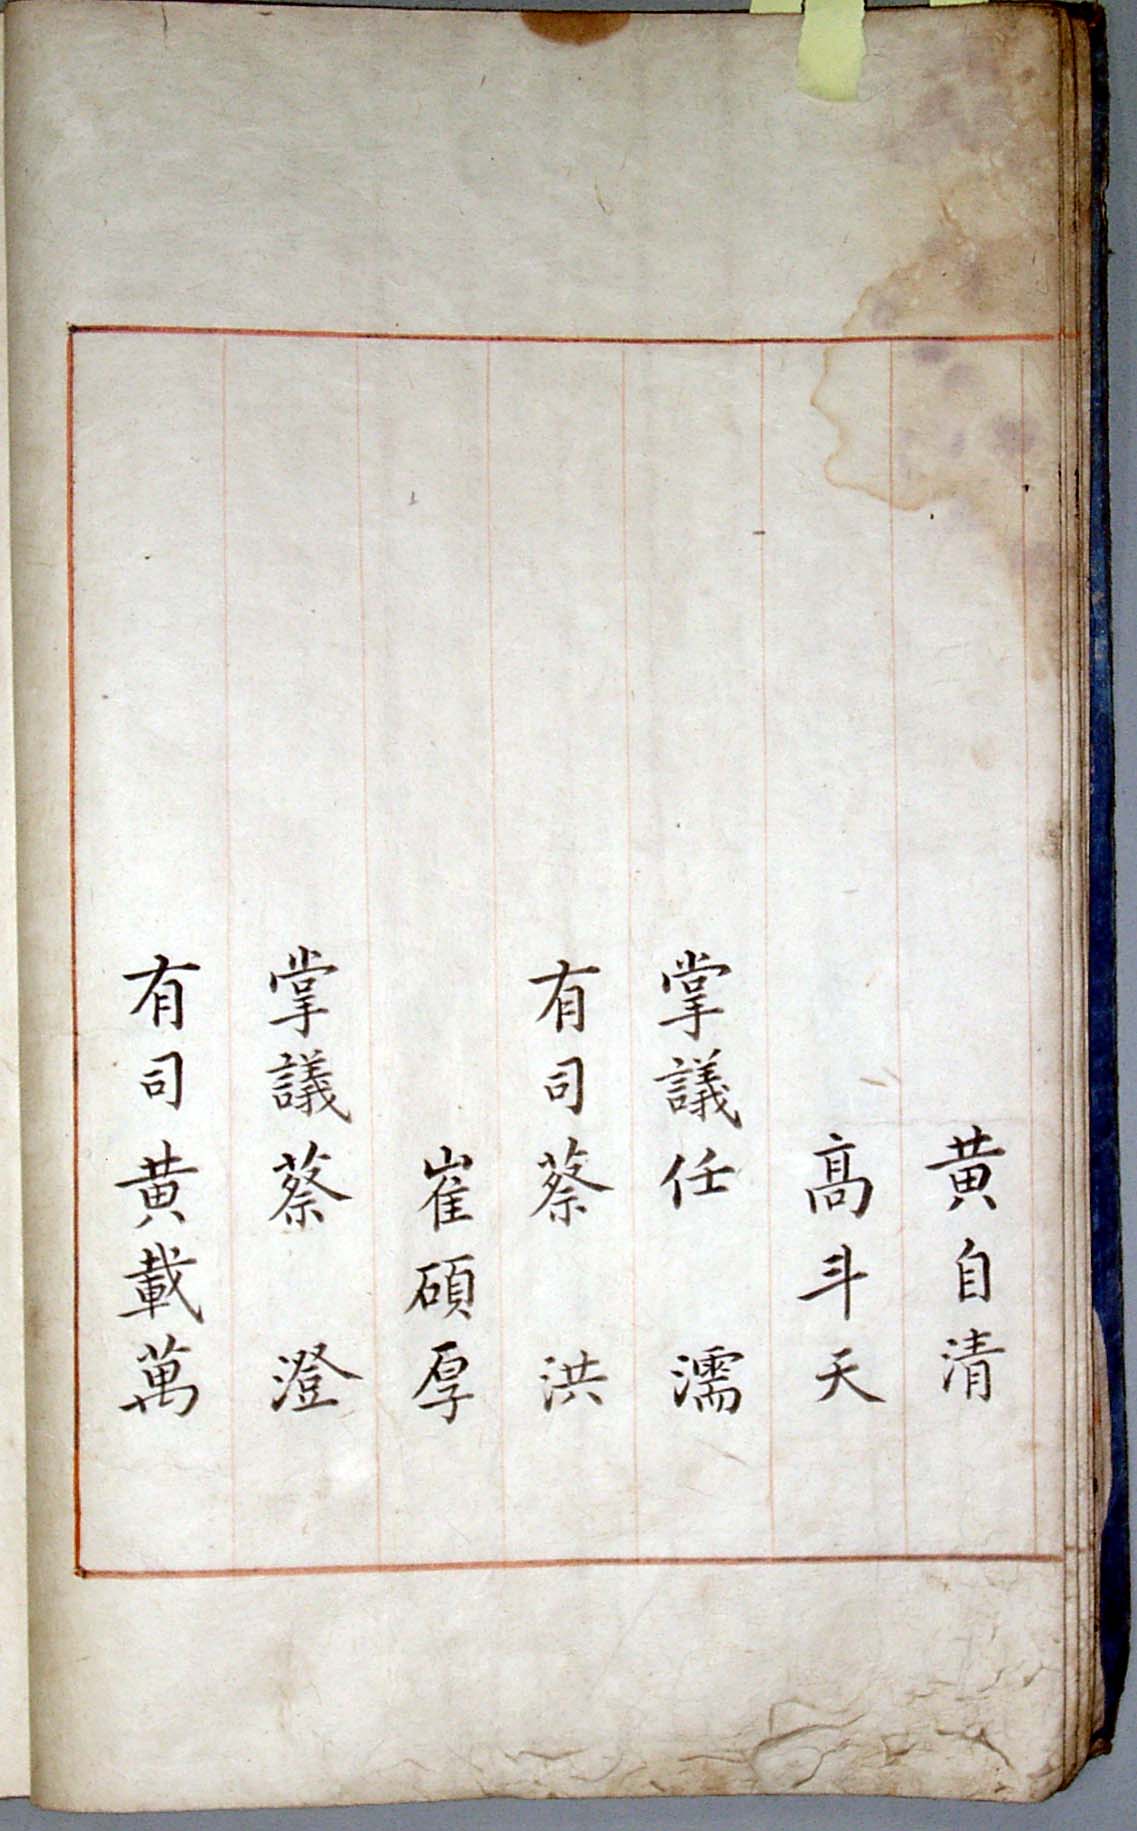 黄自清
髙斗天
掌議任 濡
有司蔡 洪
崔碩厚
掌議蔡 澄
有司黄載萬